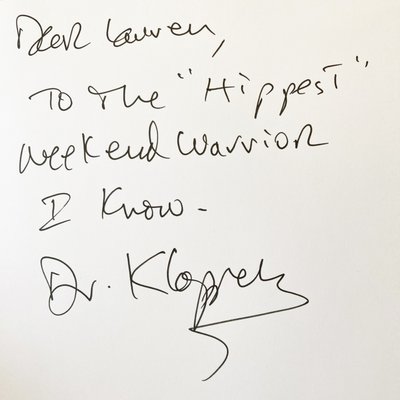 Dear Lauren,
To the "Hippest"
Weekend Warrior
I Know -
Dr. Klapper